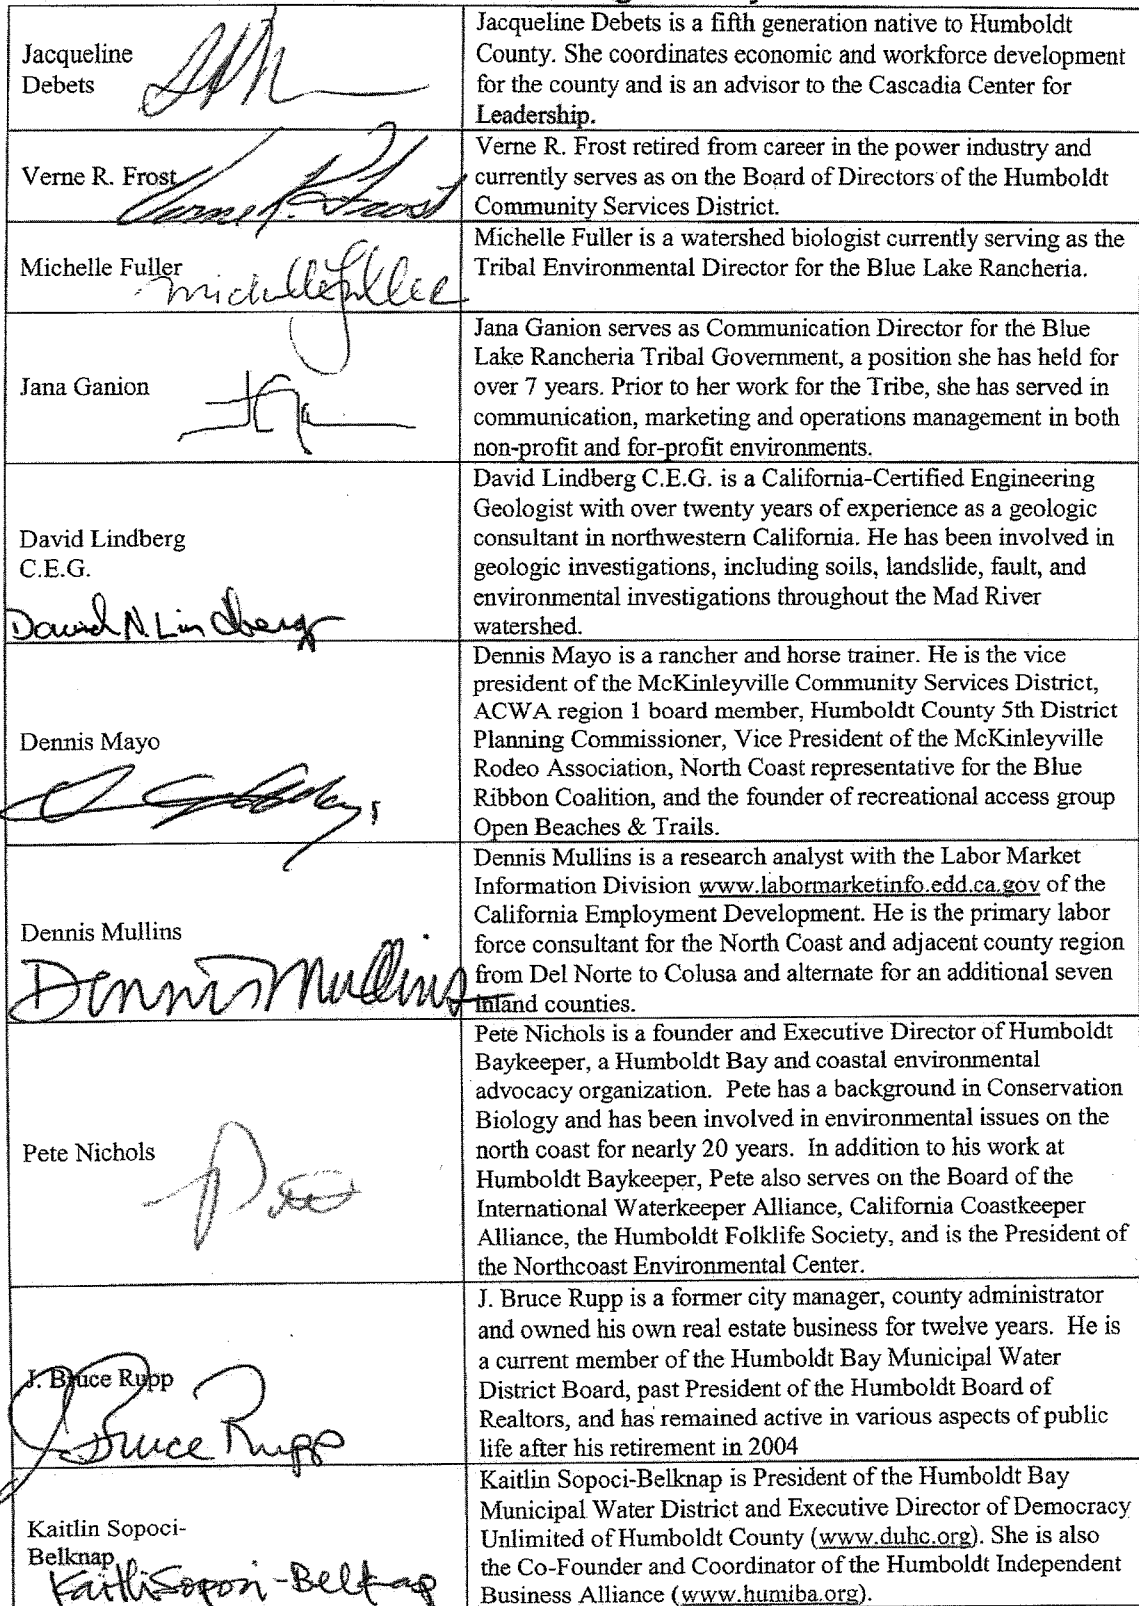 Jacqueline
Debets
Jacqueline Debets is a fifth generation native to Humboldt
County. She coordinates economic and workforce development
for the county and is an advisor to the Cascadia Center for
Leadership.
Verne R. Frost
Verne R. Frost
Verne R. Frost retired from career in the power industry and
currently serves as on the Board of Directors of the Humboldt
Community Services District.
Michelle Fuller
Michelle Fuller
Michelle Fuller is a watershed biologist currently serving as the
Tribal Environmental Director for the Blue Lake Rancheria.
Jana Ganion
Jana Ganion serves as Communication Director for the Blue
Lake Rancheria Tribal Government, a position she has held for
over 7 years. Prior to her work for the Tribe, she has served in
communication, marketing and operations management in both
non-profit and for-profit environments.
David Lindberg
C.E.G.
David N. Lindberg
David Lindberg C.E.G. is a California-Certified Engineering
Geologist with over twenty years of experience as a geologic
consultant in northwestern California. He has been involved in
geologic investigations, including soils, landslide, fault, and
environmental investigations throughout the Mad River
watershed.
Dennis Mayo
Dennis Mayo is a rancher and horse trainer. He is the vice
president of the McKinleyville Community Services District,
ACWA region 1 board member, Humboldt County 5th District
Planning Commissioner, Vice President of the McKinleyville
Rodeo Association, North Coast representative for the Blue
Ribbon Coalition, and the founder of recreational access group
Open Beaches & Trails.
Dennis Mullins
Dennis Mullins
Dennis Mullins is a research analyst with the Labor Market
Information Division www.labormarketinfo.edd.ca.gov of the
California Employment Development. He is the primary labor
force consultant for the North Coast and adjacent county region
from Del Norte to Colusa and alternate for an additional seven
inland counties.
Pete Nichols
Pete
Pete Nichols is a founder and Executive Director of Humboldt
Baykeeper, a Humboldt Bay and coastal environmental
advocacy organization. Pete has a background in Conservation
Biology and has been involved in environmental issues on the
north coast for nearly 20 years. In addition to his work at
Humboldt Baykeeper, Pete also serves on the Board of the
International Waterkeeper Alliance, California Coastkeeper
Alliance, the Humboldt Folklife Society, and is the President of
the Northcoast Environmental Center.
J. Bruce Rupp
J. Bruce Rupp
J. Bruce Rupp is a former city manager, county administrator
and owned his own real estate business for twelve years. He is
a current member of the Humboldt Bay Municipal Water
District Board, past President of the Humboldt Board of
Realtors, and has remained active in various aspects of public
life after his retirement in 2004
Kaitlin Sopoci-
Belknap
Kaitlin Sopoci-Belknap
Kaitlin Sopoci-Belknap is President of the Humboldt Bay
Municipal Water District and Executive Director of Democracy
Unlimited of Humboldt County (www.duhc.org). She is also
the Co-Founder and Coordinator of the Humboldt Independent
Business Alliance (www.humiba.org).